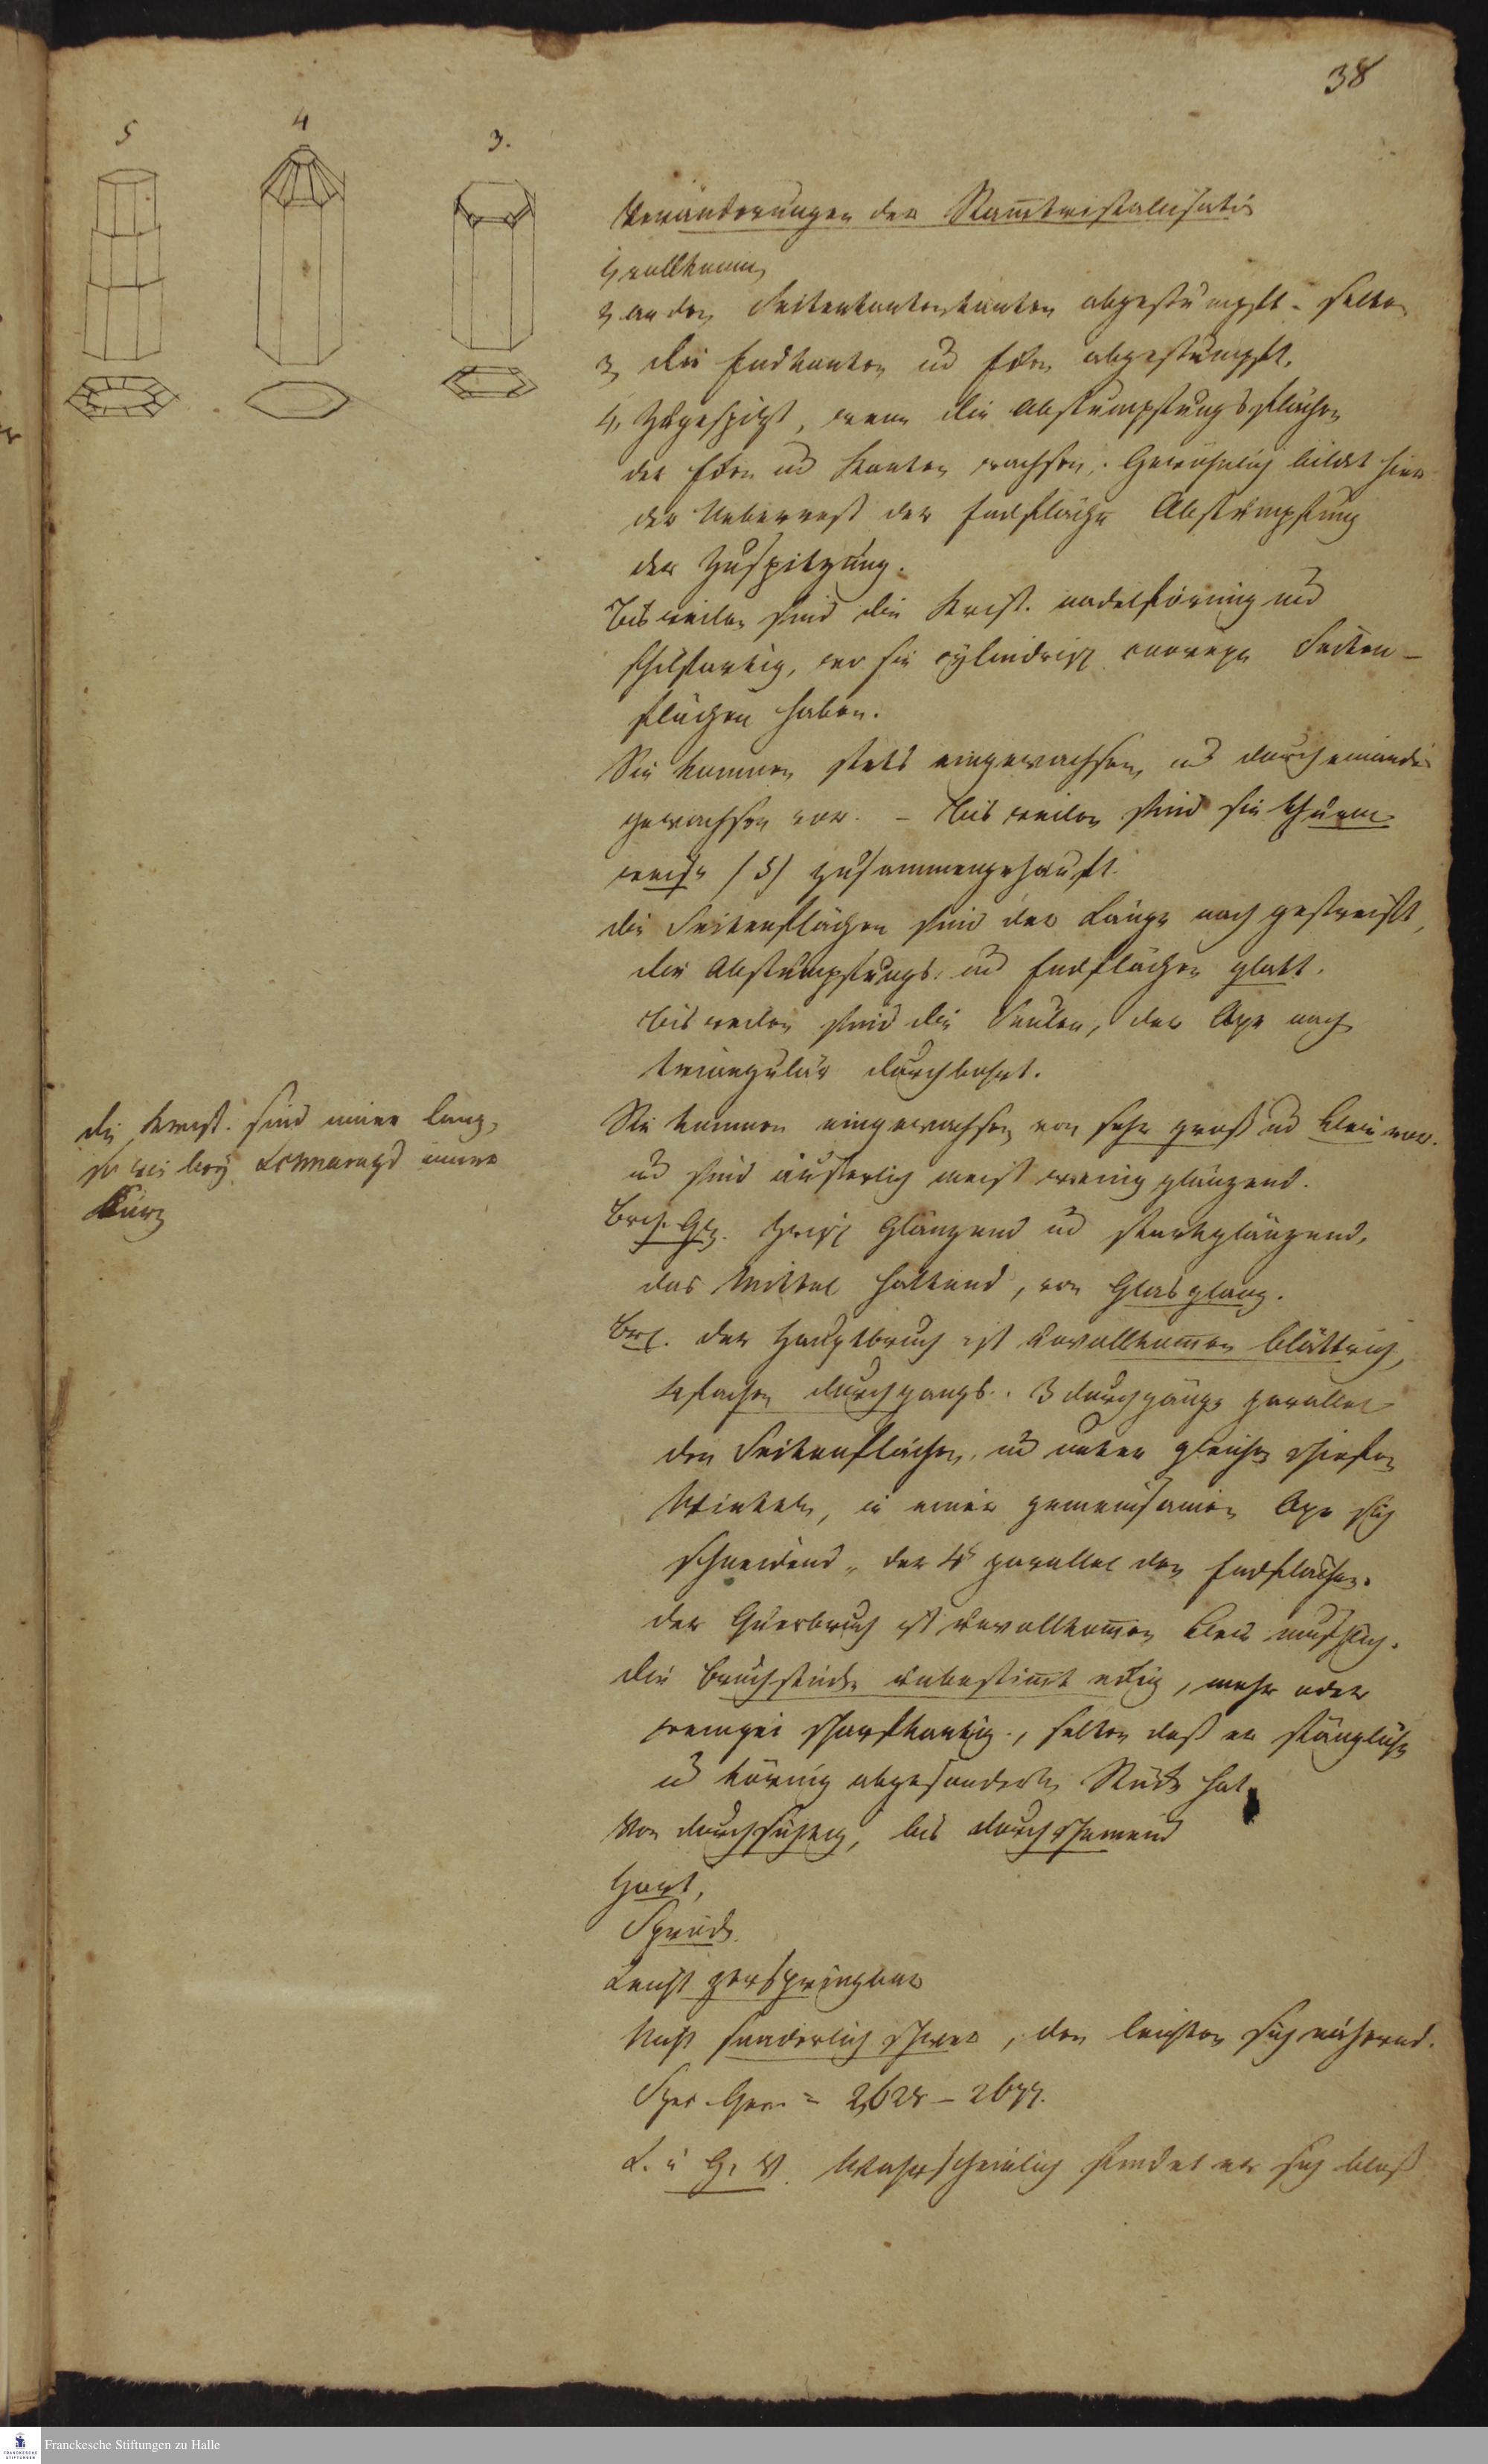 38
5
4
3.
Veränderungen der Stam̄kristallisati
1, vollkomen
2, an den Seitenkanten abgestumpft. selten
3, die Endkanten ud Ecken abgestumpft.
4, Zugespizt, wenn die Abstumpfungsflächen
der Ecken ud Kanten wachsen. Gewöhnlich bildet hier
der Ueberrest der Endfläche Abstumpfung
der Zuspitzung.
Bisweilen sind die Krist. nadelförmig und
schilfartig, wo sie cylindrisch convexe Seiten-
flächen haben.
Sie kommen stets eingewachsen, ud durcheinander
gewachsen vor. – Bisweilen sind sie thurm-
weise /5/ zusammengehäuft.
die Seitenflächen sind der Länge nach gestreift,
die Abstumpfungs- ud Endflächen glatt.
bisweilen sind die Seulen, der Axe nach
triangulär durchbohrt.
die Krist. sind immer lang,
so wie bey Schmaragd immer
kurz
Sie kommen eingewachsen von sehr groß ud klein vor.
ud sind äußerlich meist wenig glänzend.
Brch. Glz. zwisch Glänzend ud starkglänzend,
das Mittel haltend, von Glasglanz.
Brch. der Hauptbruch ist unvollkom̄en blättrich,
4fachen durchgangs. 3 durchgänge parallel
den Seitenflächen, ud unter gleichen schiefen
Winkeln, in einer gemeinsamen Axe sich
schneidend, der 4t parallel den Endflächen.
der Querbruch ist unvollkom̄en klein muschlich.
die Bruchstücke unbestim̄t eckig, mehr oder
weniger scharfkantig, selten daß er stängliche
ud körnig abgesonderte Stücke hat.
Von durchsichtig, bis durchscheinend
Hart,
Spröde.
Leicht zerspringbar
Nicht sonderlich schwer, den leichten sich nähernd.
Spec. Gew. = 2,628 – 2677.
L. u G. V. Wahrscheinlich findet er sich bloß
Franckesche Stiftungen zu Halle